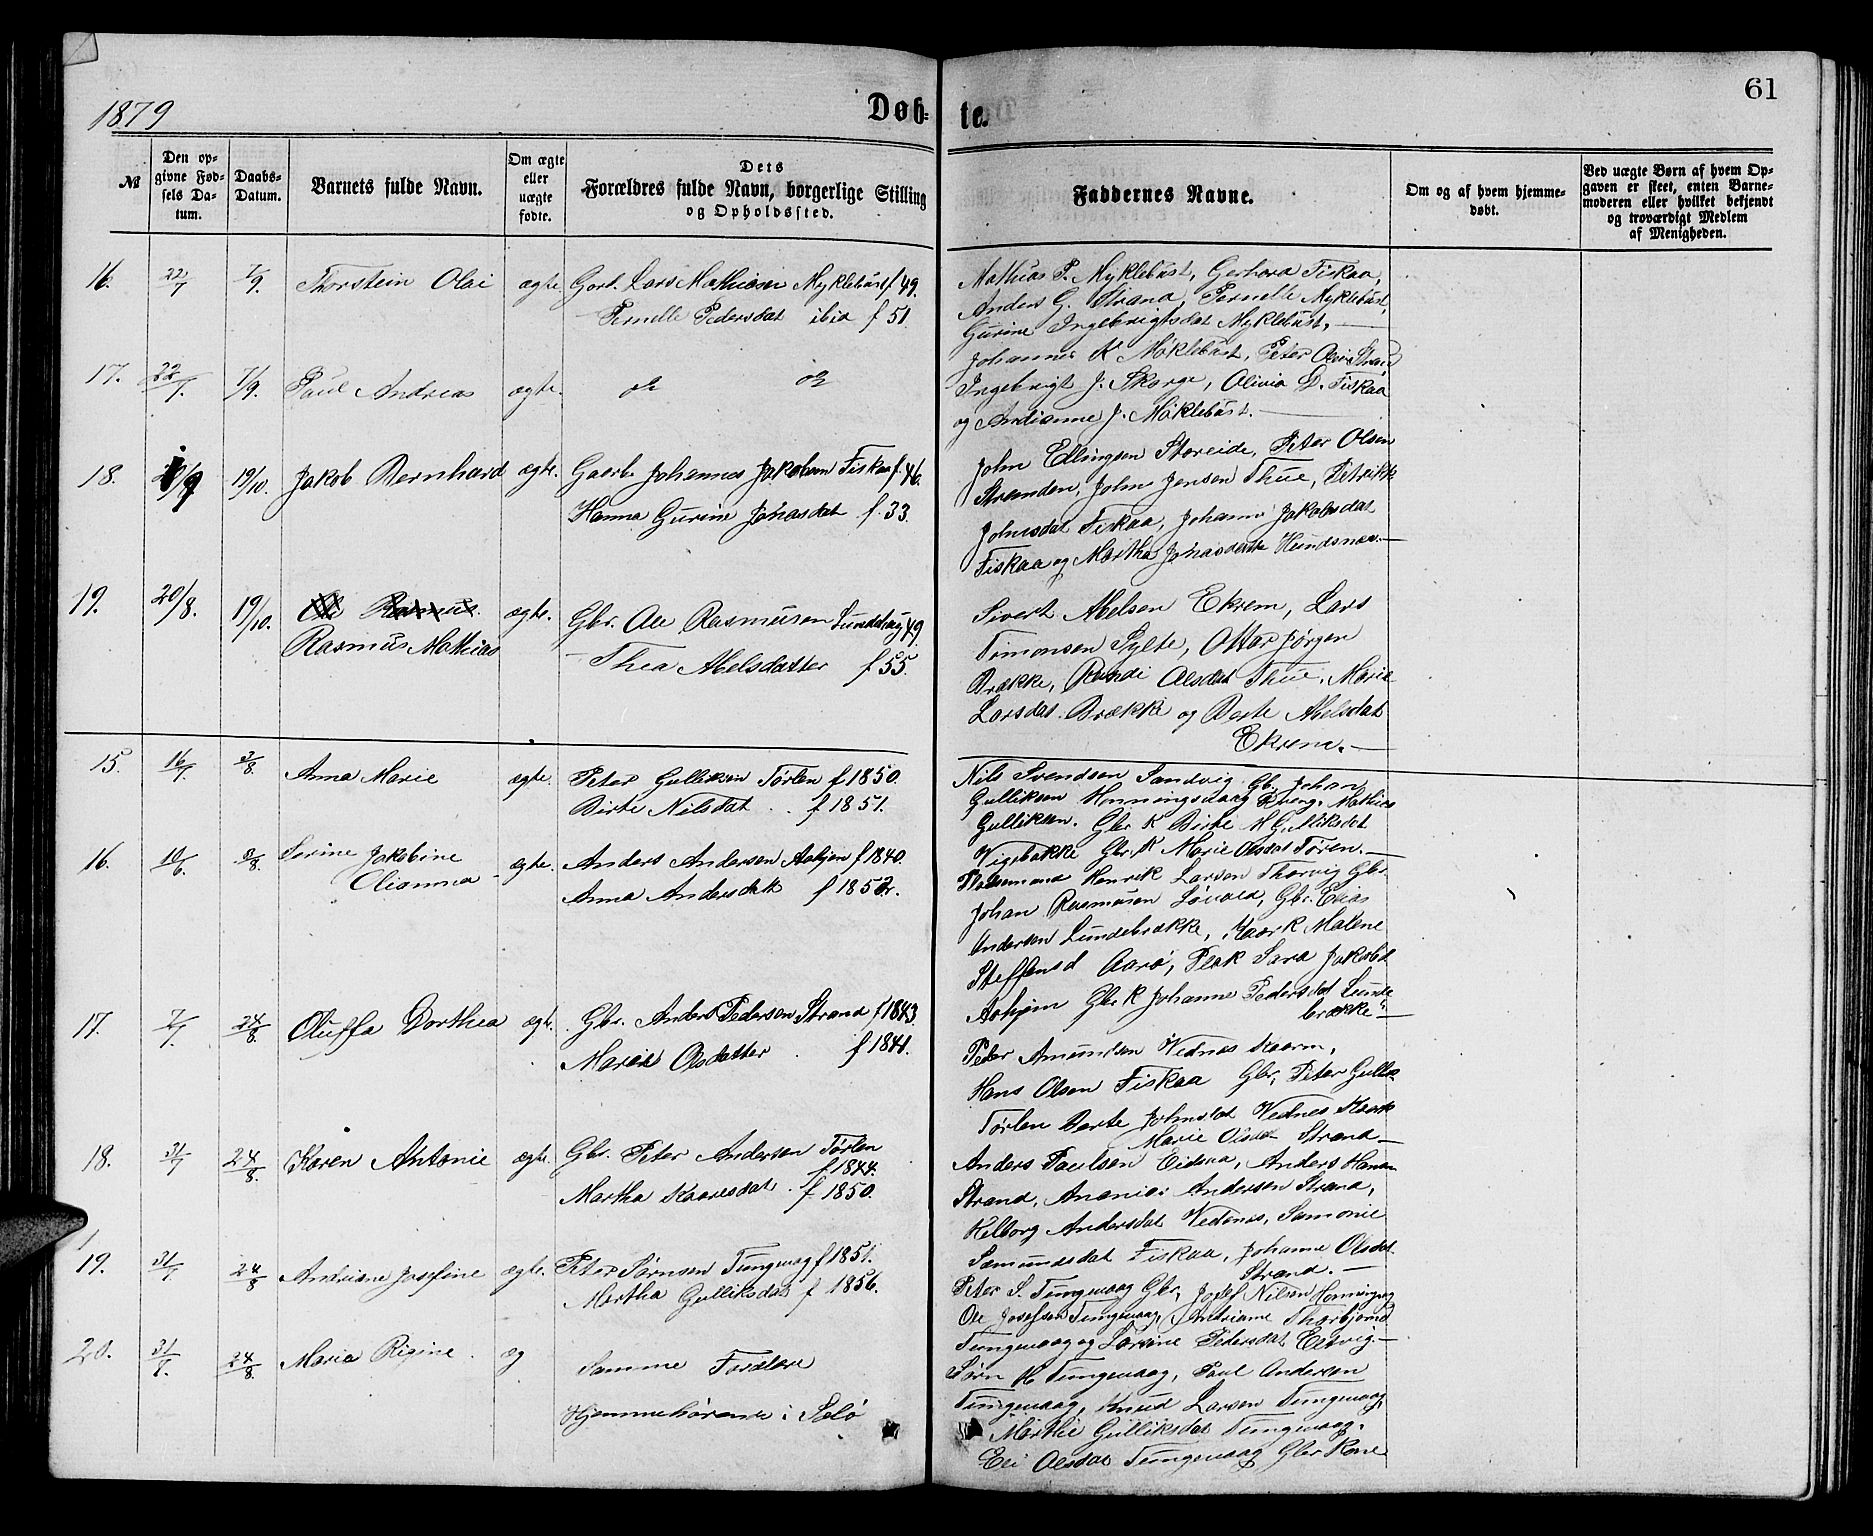 1879
Døb-
te.
61
№
Den op-
givne Fød-
sels Da-
tum.
Daabs-
Datum.
Barnets fulde Navn.
Om ægte
eller
uægte
fødte.
Dets
Forældres fulde Navn, borgerlige Stilling
og Opholdssted.
Faddernes Navne.
Om og af hvem hjemme-
døbt.
Ved uægte Børn af hvem Op-
gaven er skeet, enten Barne-
moderen eller hvilket bekjendt
og troværdigt Medlem
af Menigheden.
16. 22/7 7/9. Thorstein Olai ægte Lars Mathiesen Myklebust f 49.
Pernelle Pedersdat ibid f 51
Mathias P. Myklebust, Gerhard Fiskaa,
Anders G. Strand, Pernelle Myklebust,
Gurine Ingebrigtsdat Myklebust.
17. 22/7. 7/9. Paul Andreas ægte. do do
Johannes K Møklebust, Peter
Ingebrigt J. Skorge, Olivia D. Fiskaa
og Andianne J. Møklebust.
18. 19/10. Jakob Bernhard ægte. Gaarb Johannes Jakobsen Fiskaa f. 46.
Hanna Gurine Jonasdat f. 33.
John Ellingsen Storeide, Peter Olsen
Stranden, John Jensen Thue, Petrikke
Johnsdat Fiskaa, Johanne Jakobsdat
Fiskaa og Martha Jonasdatte Hundsnæs.
19. 20/8. 19/10. Ole Rasmus. ægte. Gbr. Ole Rasmusen Lundehaug 49
Rasmus Mathias
Thea Abelsdatter f 55.
Sivert Abelsen Ekrem, Lars
Timonsen Sylte, Ottar Jørgen
Brække, Randi Olsdat Thue, Marie
Larsdat. Brække og Berte Abelsdat
Ekrem.
15. 16/7 3/8. Anna Marie ægte. Peter Gulliksen Tørlen f 1850.
Birte Nilsdat f 1851.
Nils Svendsen Sandvig Gb. Johan
Gulliksen Honningsvaag Mathias
Gulliksen. Gbr K Birte
Vigebakke Gbr. K Marie Olsdat Tøren.
16. 10/6. 3/8. Serine Jakobine ægte. Anders Andersen Aahjem f 1840.
Olianna
Anna Andersdatt f 1852.
Henrik Larsen Thorvig Gbr.
Johan Rasmusen Løvold, Gbr. Elias
Andersen Lundebrække, Kaark Malene
Steffensd Aarø, Sara Jakobsd
Aahjem Gbr K Johanne Pedersdat Lunde
brække
17. 7/7. 24/8. Oluffa Dorthea ægte. Gbr. Anders Pedersen Strand f 1843.
Marie Olsdatter f 1841.
Peder Amundsen Vednes Kaarm,
Hans Olsen Fiskaa Gbr, Peter Gullik
Tørlen Berte Johnsdat Vednes Kaark
Marie Olsdat Strand
18. 31/7 24/8. Karen Antonie ægte. Gbr. Peter Andersen Tørlen
f 1844.
Martha Kaaresdat f 1850.
Anders Paulsen Eidsaa, Anders Hansen
Strand, Ananias Andersen Strand,
Andersdat Vednes, Samonie
Samundsdat Fiskaa, Johanne Olsdat.
Strand.
19. 31/7 24/8 Andriane Josefine ægte. Peter Sørnsen Tungevaag f 1851.
Martha Gulliksdat f 1856.
Peter S. Tungevaag Gbr, Josef Nilsen Honningsvg
Ole Josefsen Tungevaag, Andrianne Thorbjørnd
Tungevaag og Larsine Pedersdat Eltvig.
20. 31/7. 24/8. Maria Rigine. æg Samme Forældre
Hjemmehørende i Selø
Sørn H Tungevaag, Paul Andersen
Tungevaag, Knud Larsen Tungevaag,
Marthe Gulliksdat Tungevaag.
Eli Olsdat Tungevaag Gbr Kone